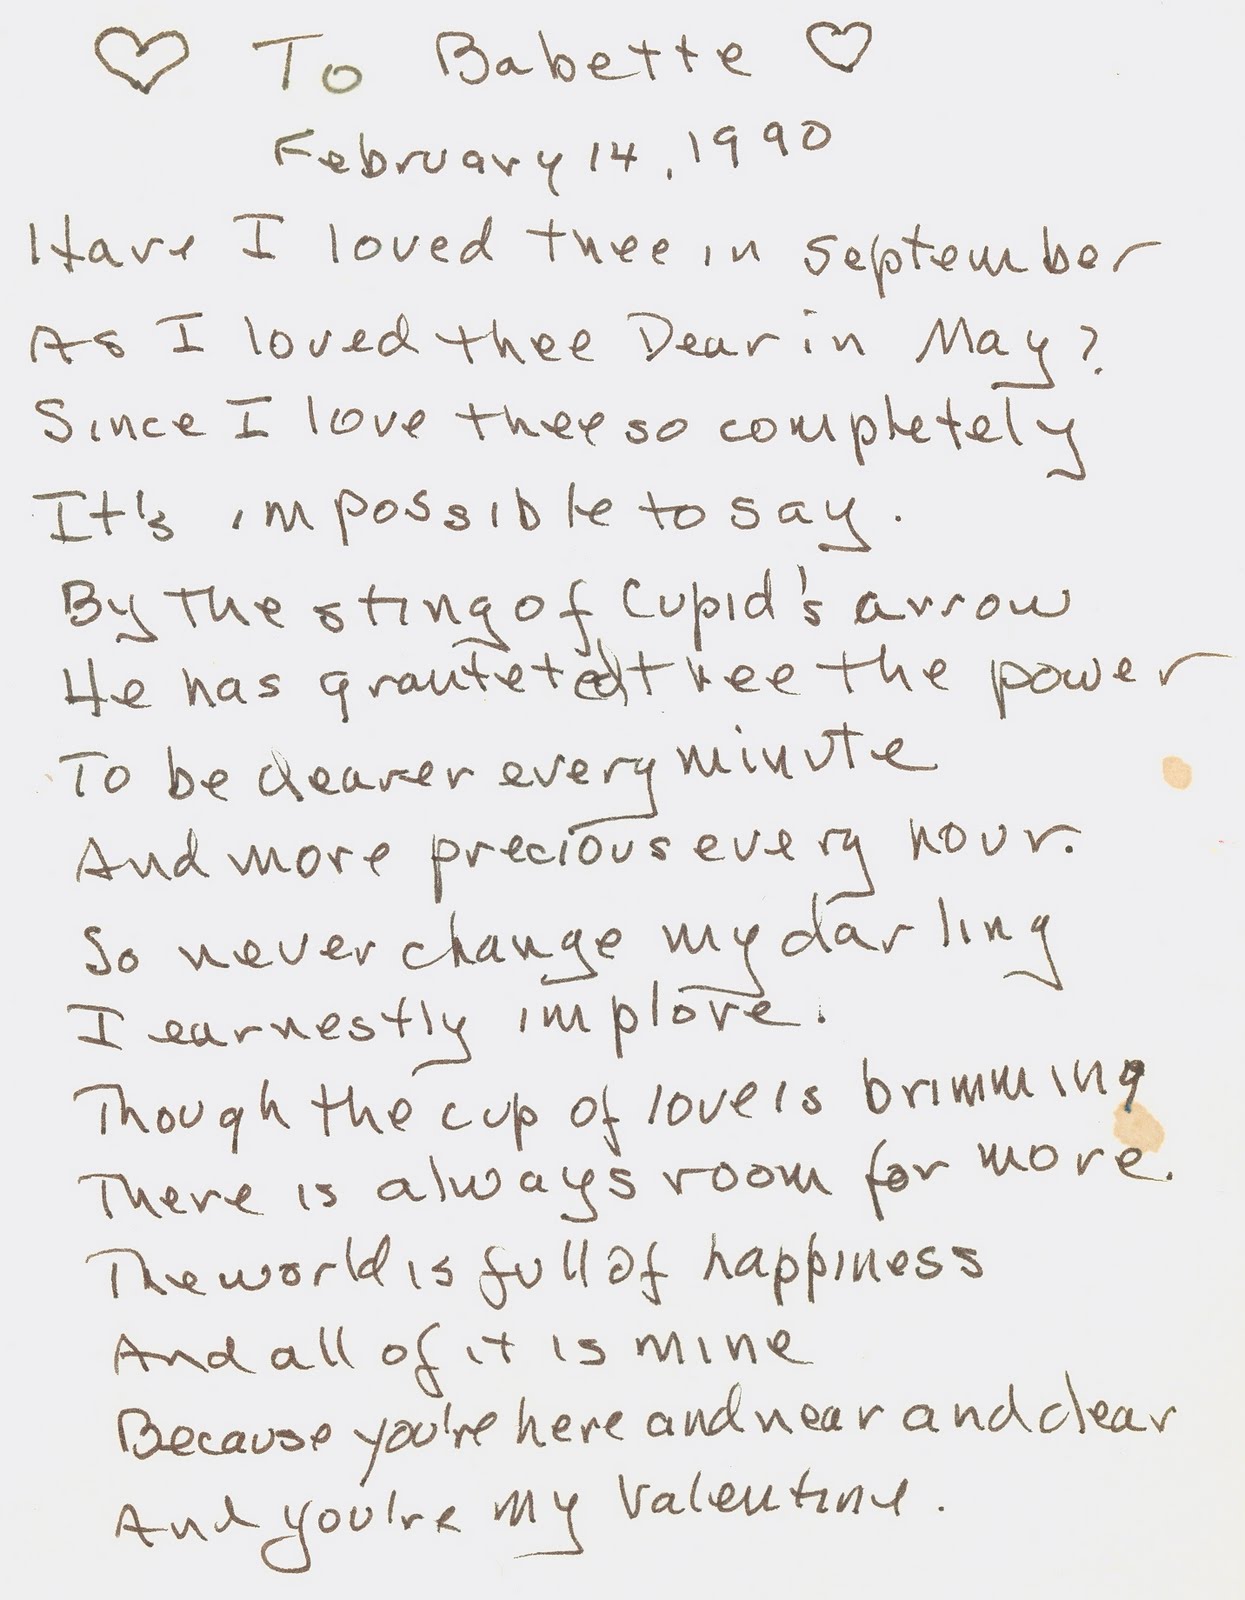 ♡ To Babette ♡
February 14, 1990
Have I loved thee in September
As I loved thee Dear in May?
Since I love thee so completely
It's impossible to say.
By the sting of Cupid's arrow
He has granteted thee the power
To be dearer every minute
And more precious every hour.
So never change my darling
I earnestly implore.
Though the cup of love is brimming
There is always room for more.
The world is full of happiness
And all of it is mine
Because you're here and near and dear
And you're my Valentine.